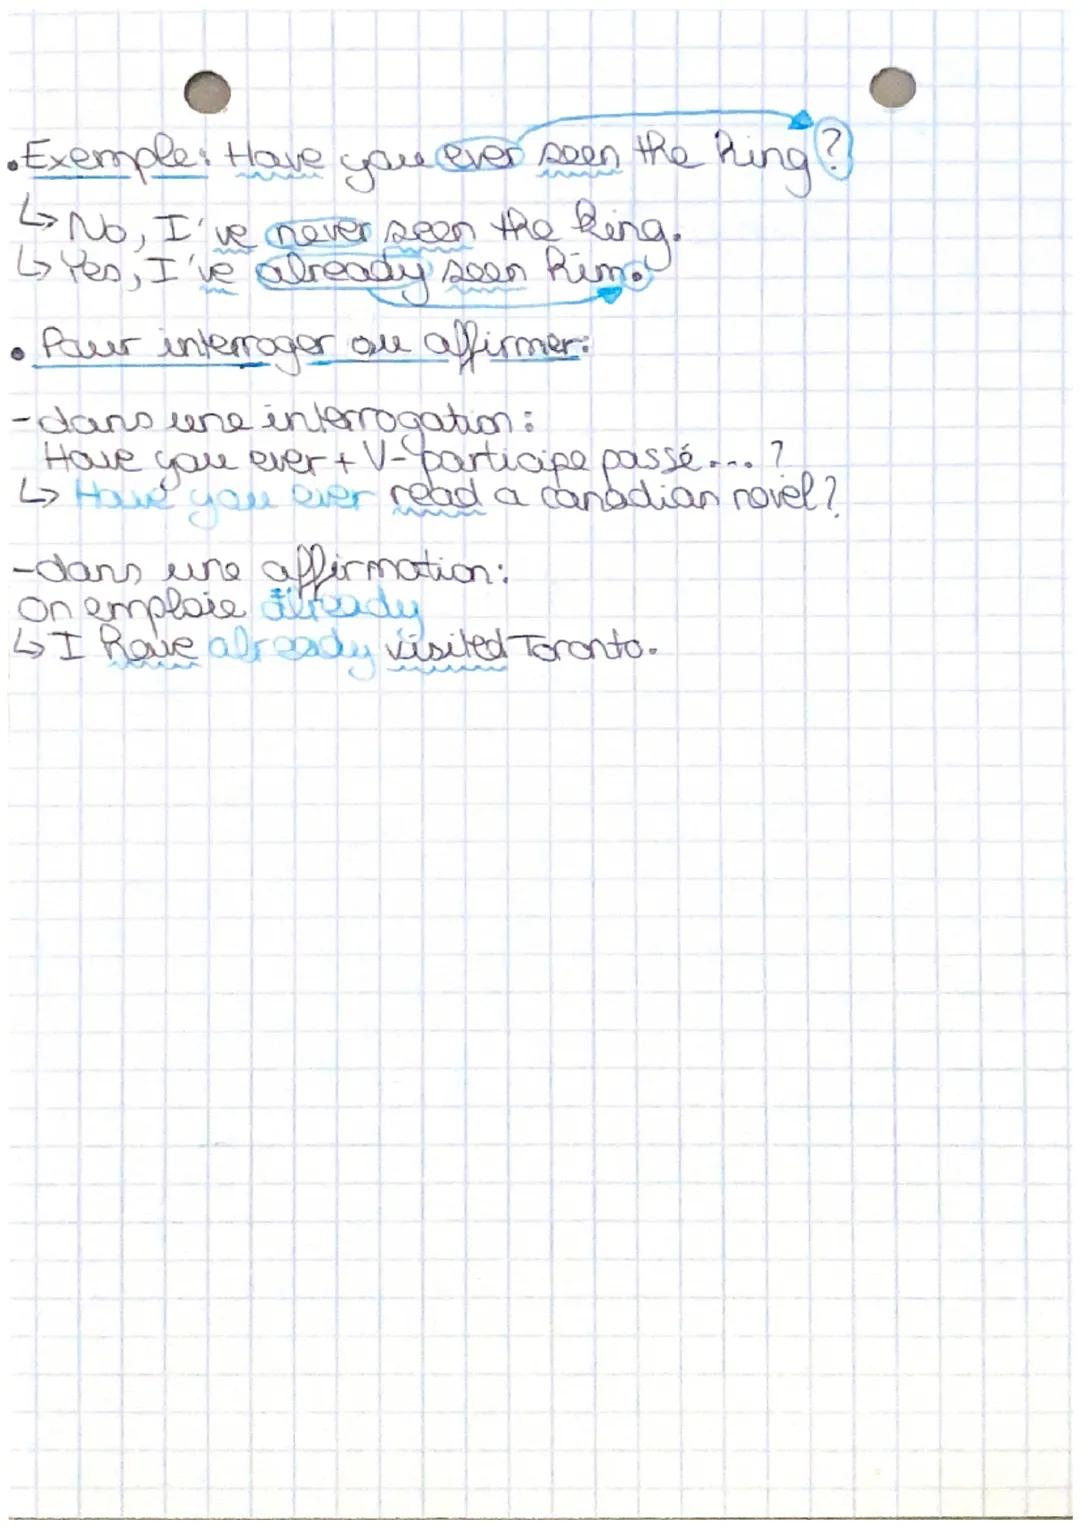 .Exemple: Have you ever seen the King?
↳ No, I've never seen the King.
↳ Yes, I've already seen him.
• Pour interroger ou affirmer:
- dans une interrogation:
Have you ever + V-participe passé... ?
↳ Have you ever read a canadian novel?
- dans une affirmation:
On emploie already
↳ I have already visited Toronto.